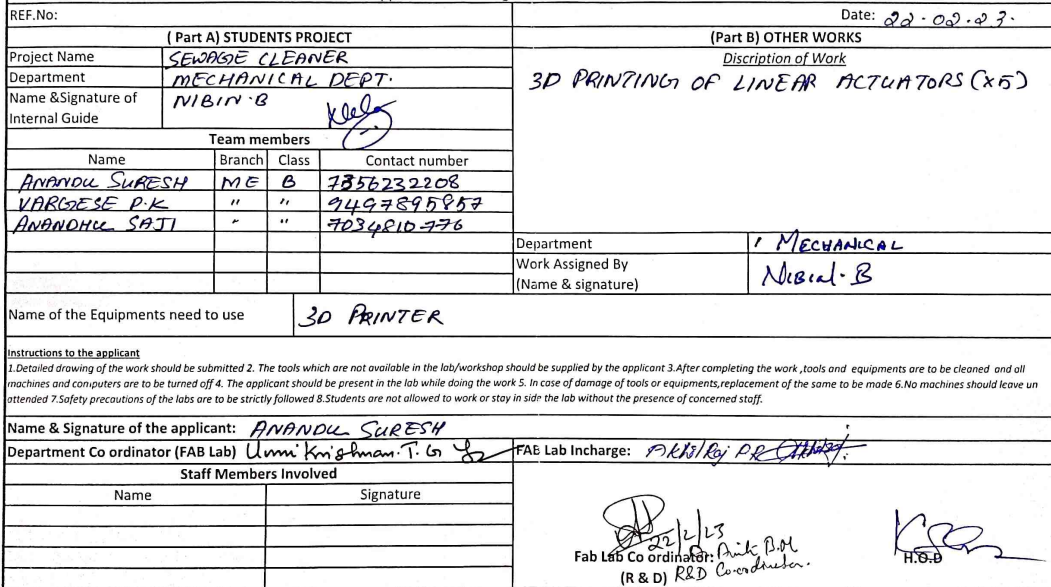 REF.No:
Date: 22-02-23.
( Part A) STUDENTS PROJECT
(Part B) OTHER WORKS
Project Name SEWAGE CLEANER
Discription of Work
Department MECHANICAL DEPT.
3D PRINTING OF LINEAR ACTUATORS (X5)
Name &Signature of
Internal Guide
NIBIN.B
Team members
Name Branch Class Contact number
ANANDU SURESH ME B 7356232208
VARGESE P.K " " 9497895857
ANANDHU SAJI " " 7034810776
Department MECHANICAL
Work Assigned By
(Name & signature)
Nibin. B
Name of the Equipments need to use 3D PRINTER
Instructions to the applicant
1.Detailed drawing of the work should be submitted 2. The tools which are not available in the lab/workshop should be supplied by the applicant 3.After completing the work ,tools and equipments are to be cleaned and all
machines and computers are to be turned off 4. The applicant should be present in the lab while doing the work 5. In case of damage of tools or equipments,replacement of the same to be made 6.No machines should leave un
attended 7.Safety precautions of the labs are to be strictly followed 8.Students are not allowed to work or stay in side the lab without the presence of concerned staff.
Name & Signature of the applicant: ANANDU SURESH
Department Co ordinator (FAB Lab) Unni Krishnan. T. G
FAB Lab Incharge: Akhil Raj P R
Staff Members Involved
Name Signature
22/2/23
Fab Lab Co ordinator: B.M
H.O.D
(R & D) R&D Co-ordinator.